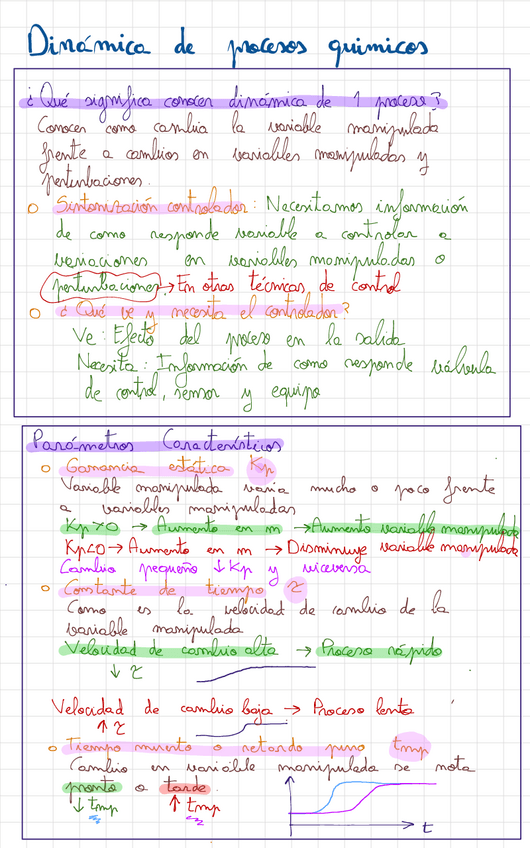 Dinámica de procesos quimicos
¿Qué significa conocer dinámica de 1 proceso?
Conocer como cambia la variable manipulada
frente a cambios en variables manipuladas y
perturbaciones.
Sintonización controlador: Necesitamos información
de como responde variable a controlar a
variaciones en variables manipuladas o
perturbaciones → En otras técnicas de control
¿Qué ve y necesita el controlador?
Ve: Efecto del proceso en la salida
Necesita: Información de como responde válvula
de control, sensor y equipo
Parámetros Característicos
Ganancia estática Kp
Variable manipulada varia mucho o poco frente
a variables manipuladas
Kp>0 → Aumento en m → Aumento variable manipulada
Kp<0 → Aumento en m → Disminuye variable manipulada
Cambio pequeño ↓ Kp y viceversa
Constante de tiempo τ
Como es la velocidad de cambio de la
variable manipulada
Velocidad de cambio alta → Proceso rápido
↓ τ
Velocidad de cambio baja → Proceso lento
↑ τ
Tiempo muerto o retardo puro tmp
Cambio en variable manipulada se nota
pronto o tarde
↓ tmp ↑ tmp
t